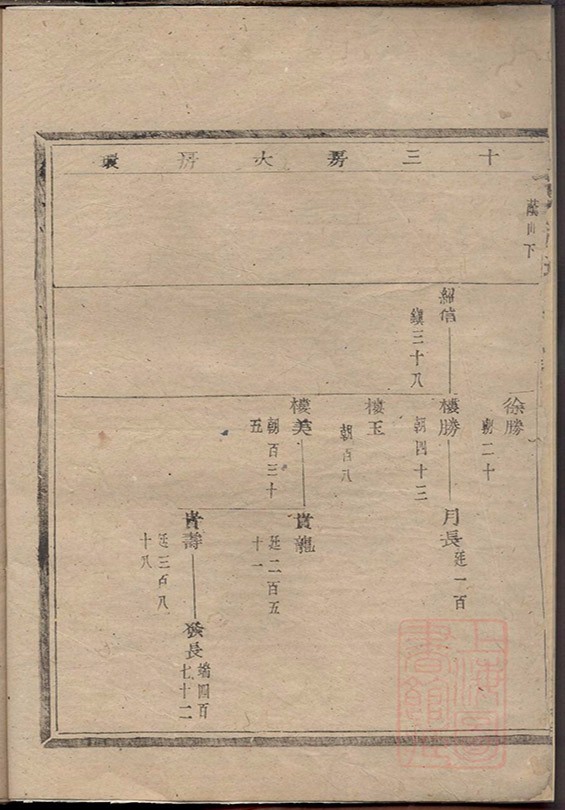 十三房大房
下
紹信
鎮三十八
徐勝
二十
樓勝
朝四十三
月長
廷一百
樓玉
朝百八
樓美
朝百三十
五
貴龍
廷二百五
十一
貴壽
廷三百八
十八
發長
端四百
七十二
上海圖
書館藏